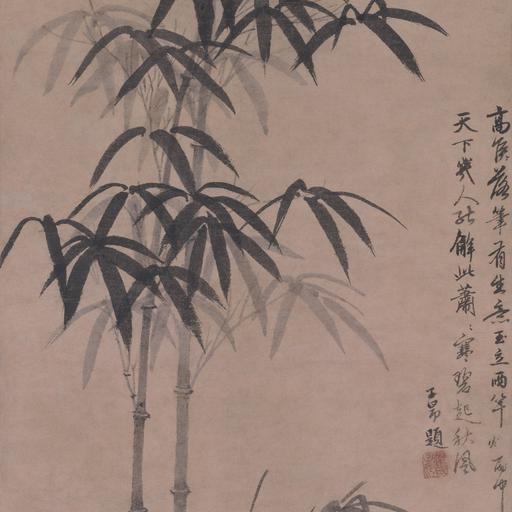 高侯落筆有生意玉立兩竿煙雨中
天下幾人能解此蕭〻寒碧起秋風
子昂題